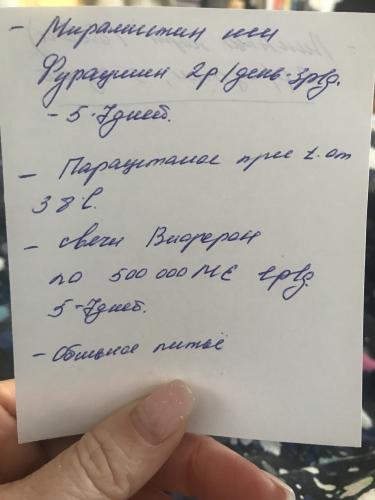 - Мирамистин или
Фурацилин 2р/день-3р/д.
- 5-7дней.
- Парацетамол при t. от
38°С.
- свечи Виферон
по 500 000 МЕ 2р/д.
5-7дней.
- Обильное питьё